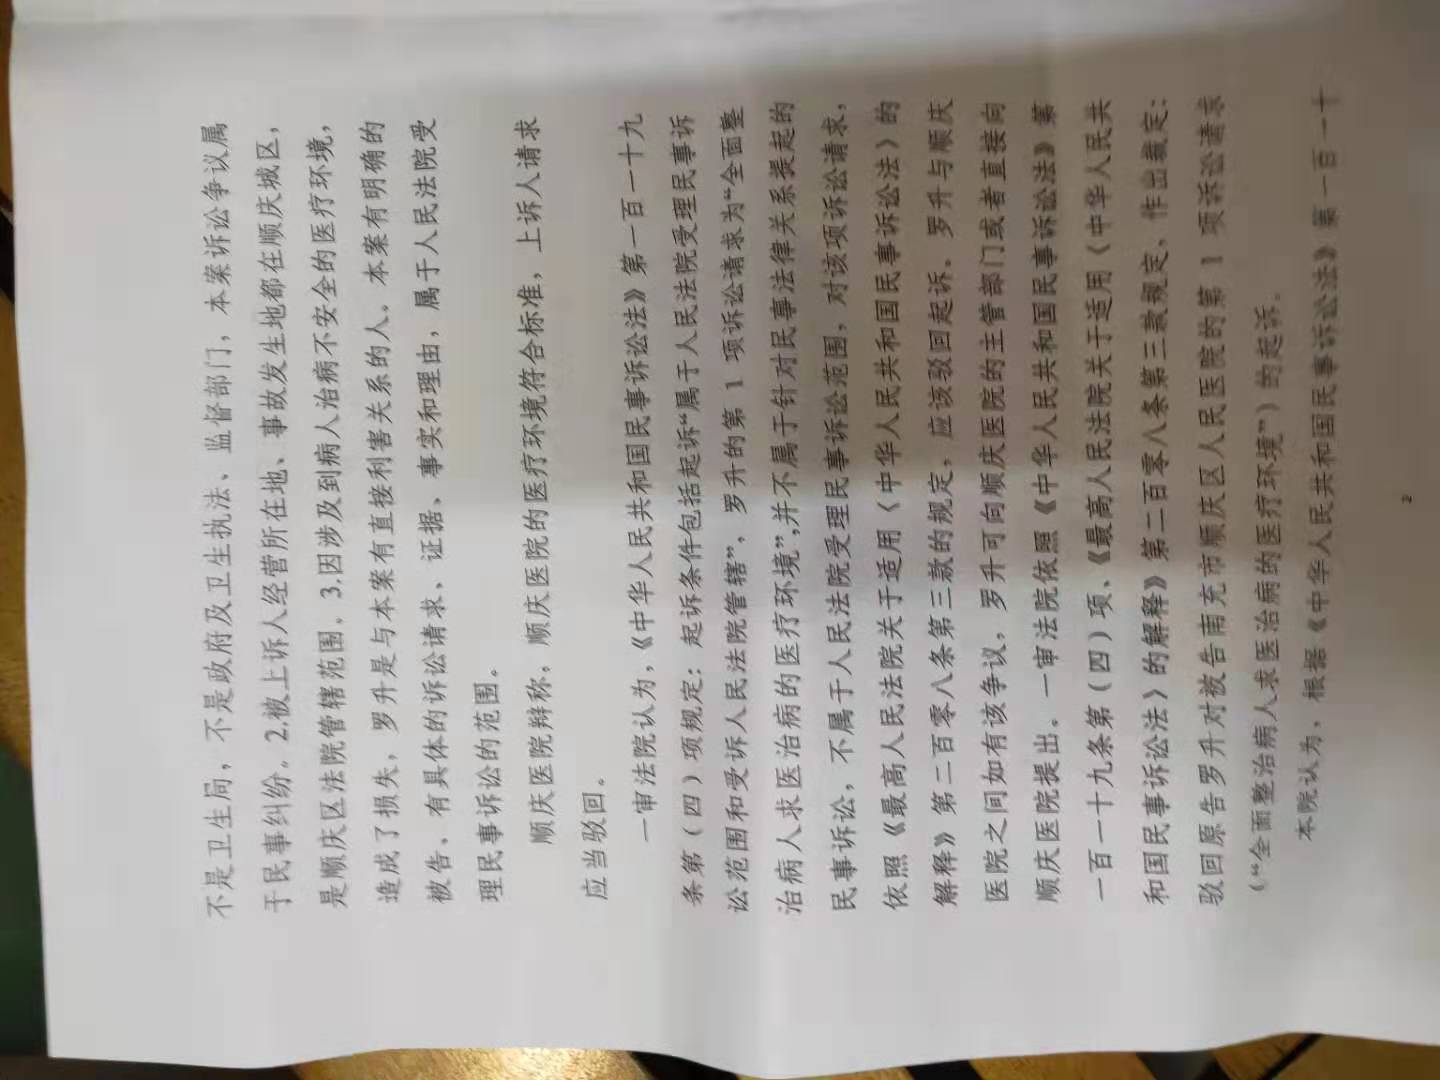 不是卫生局，不是政府及卫生执法、监督部门，本案诉讼争议属
于民事纠纷。2.被上诉人经营所在地、事故发生地都在顺庆城区，
是顺庆区法院管辖范围。3.因涉及到病人治病不安全的医疗环境，
造成了损失，罗升是与本案有直接利害关系的人。本案有明确的
被告、有具体的诉讼请求、证据、事实和理由，属于人民法院受
理民事诉讼的范围。
顺庆医院辩称，顺庆医院的医疗环境符合标准，上诉人请求
应当驳回。
一审法院认为，《中华人民共和国民事诉讼法》第一百一十九
条第（四）项规定：起诉条件包括起诉“属于人民法院受理民事诉
讼范围和受诉人民法院管辖”，罗升的第 1 项诉讼请求为“全面整
治病人求医治病的医疗环境”，并不属于针对民事法律关系提起的
民事诉讼，不属于人民法院受理民事诉讼范围，对该项诉讼请求，
依照《最高人民法院关于适用〈中华人民共和国民事诉讼法〉的
解释》第二百零八条第三款的规定，应该驳回起诉。罗升与顺庆
医院之间如有该争议，罗升可向顺庆医院的主管部门或者直接向
顺庆医院提出。一审法院依照《中华人民共和国民事诉讼法》第
一百一十九条第（四）项、《最高人民法院关于适用〈中华人民共
和国民事诉讼法〉的解释》第二百零八条第三款规定，作出裁定：
驳回原告罗升对被告南充市顺庆区人民医院的第 1 项诉讼请求
（“全面整治病人求医治病的医疗环境”）的起诉。
本院认为，根据《中华人民共和国民事诉讼法》第一百一十
2